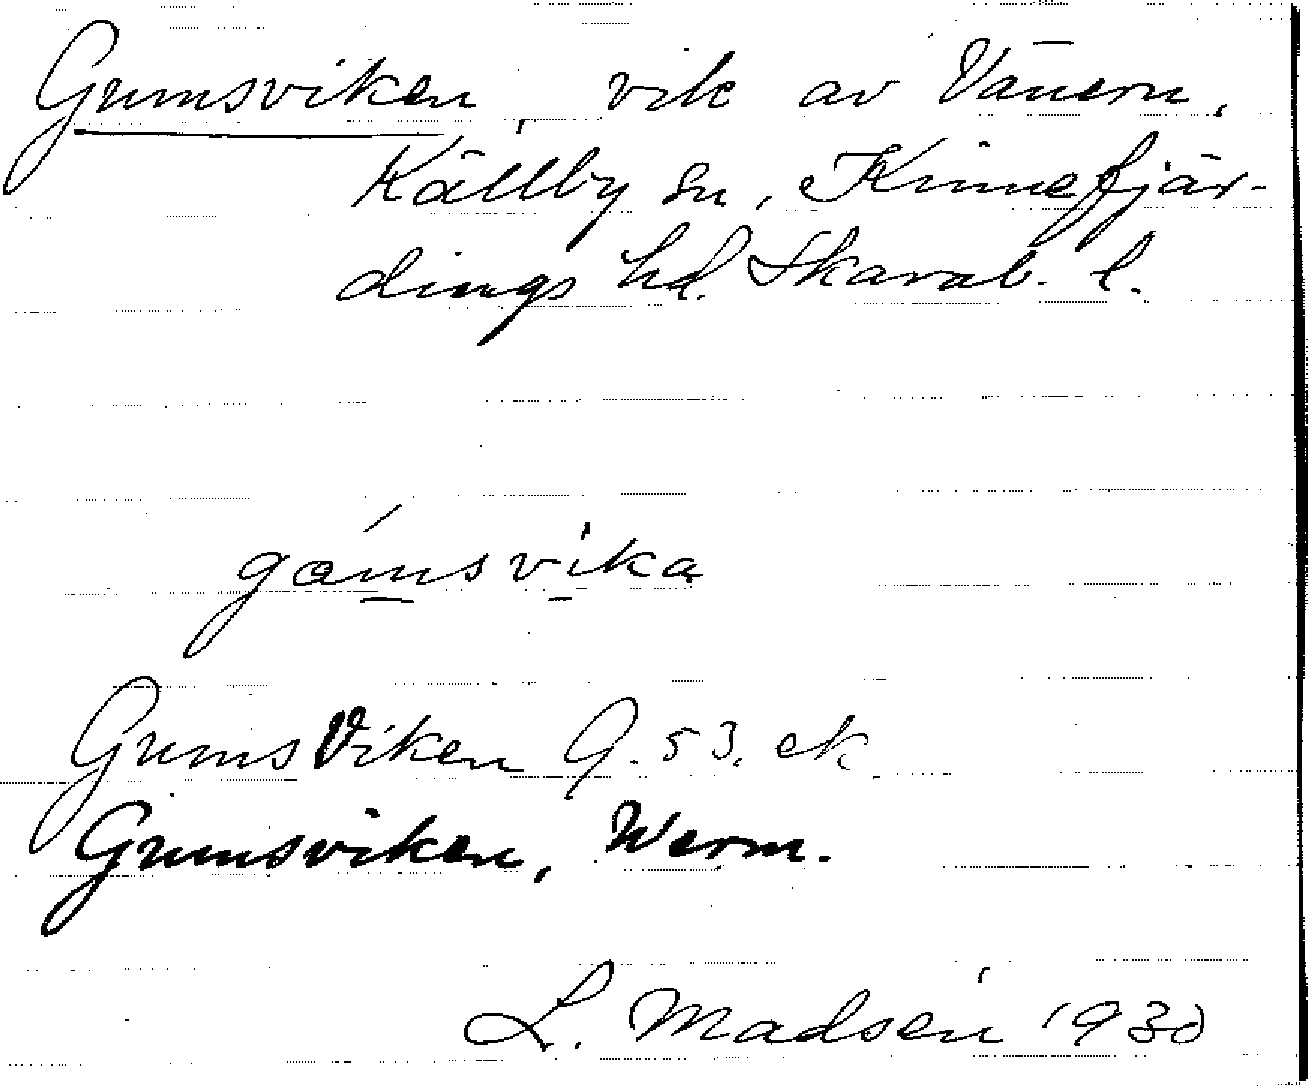 Gumsviken, vik av Vänern,
Källby sn, Kinnefjär-
dings hd. Skarab. l.
gamsvika
GumsViken G. 53. ek
Gumsviken, Werm.
L. Madsén 1930